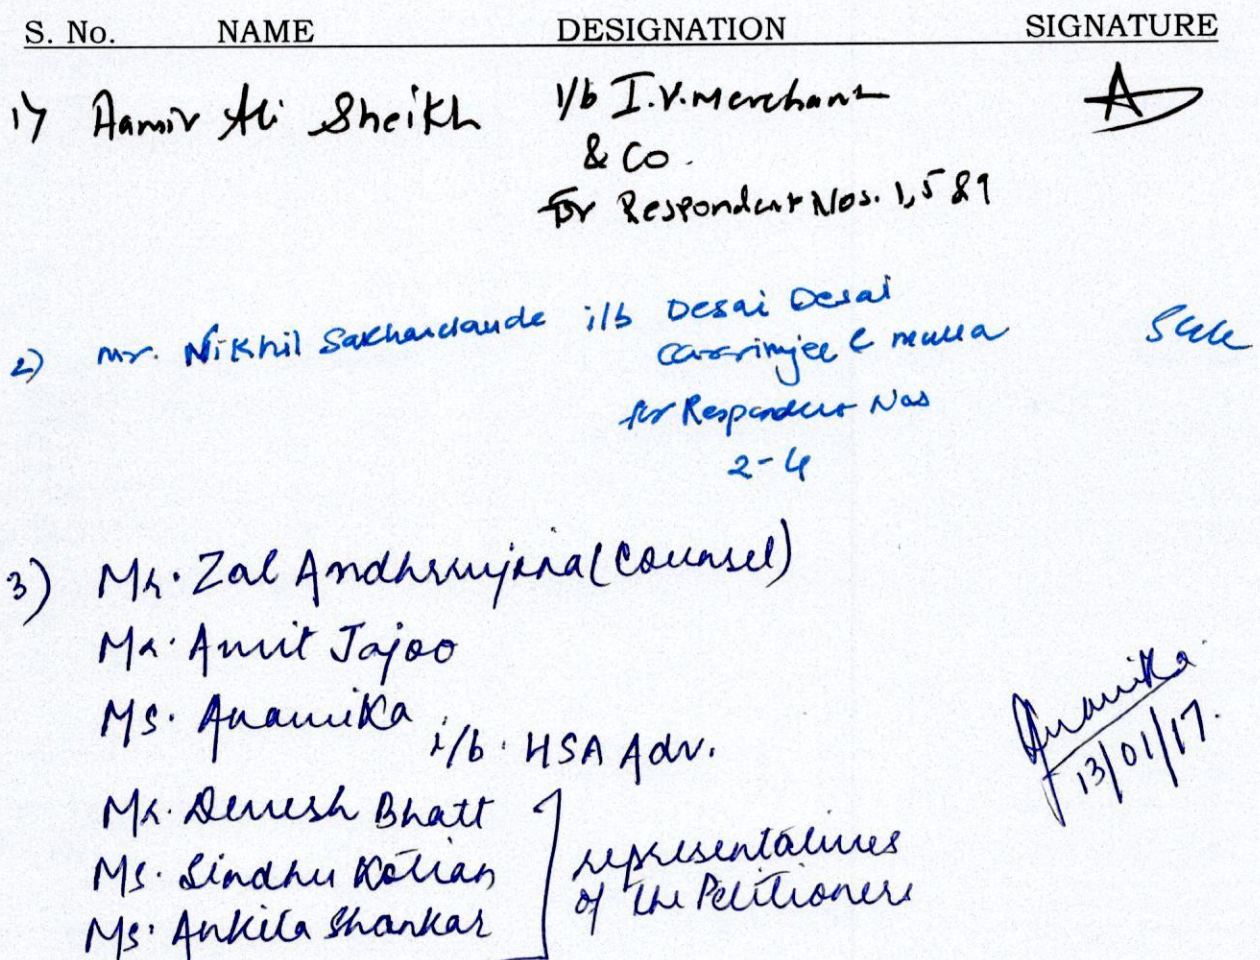 S. No. NAME DESIGNATION SIGNATURE
1) Aamir Ali Sheikh i/b I.V.Merchant
& Co.
for Respondent Nos. 1,5 &9
2) Mr. Nikhil Sakhardande i/b Desai Desai
Carrimjee & Mulla
for Respondent Nos
2-4
3) Mr. Zal Andhyarujina (Counsel)
Mr. Amit Jajoo
Ms. Anamika
i/b. HSA Adv.
Anamika
13/01/17.
Mr. Devesh Bhatt
Ms. Sindhu Kotian
Ms. Ankita Shankar
representatives
of the Petitioners